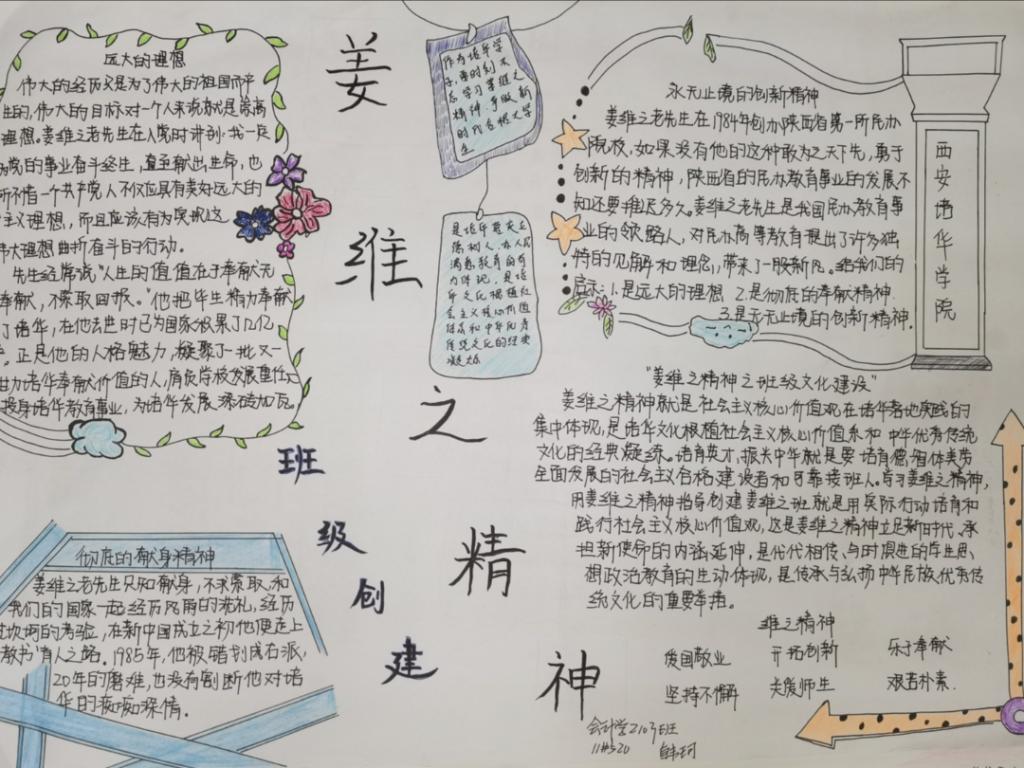 姜维之精神
班级创建
远大的理想
伟大的经历又是为了伟大的祖国而产
生的,伟大的目标对一个人来说就是崇高
理想。姜维之老先生在入党时讲到:我一定
为党的事业奋斗终生,直至献出生命,也
所不惜一个共产党人不仅应具有美好远大的
主义理想,而且应该有为实现这
伟大理想曲折奋斗的行动。
先生经常说“人生的价值在于奉献无
奉献,不索取回报。”他把毕生精力奉献
了培华,在他去世时已为国家积累了12亿
。正是他的人格魅力,凝聚了一批又一
甘为培华奉献价值的人,肩负学校发展重任
投身培华教育事业,为培华发展添砖加瓦。
彻底的献身精神
姜维之老先生只知献身,不求索取,和
我们的国家一起经历风雨的洗礼,经历
过坎坷的考验,在新中国成立之初他便走上
教书育人之路。1985年,他被错划成右派,
20年的磨难,也没有割断他对培
华的痴痴深情。
作为培华学
子,要时刻不
忘学习姜维之
精神,争做新
时代合格大学
生
是培华贯穿立
德树人、办人民
满意教育的有
力体现,是培
华文化根植社
会主义核心价值
体系和中华优秀
传统文化的经典
凝炼
永无止境的创新精神
姜维之老先生在1984年创办陕西省第一所民办
院校,如果没有他的这种敢为之天下先,勇于
创新的精神,陕西省的民办教育事业的发展不
知还要推迟多久。姜维之老先生是我国民办教育事
业的领路人,对民办高等教育提出了许多独
特的见解和理念,带来了一股新风。给我们的
启示:1.是远大的理想 2.是彻底的奉献精神
3.是无无止境的创新精神.
西安培华学院
“姜维之精神之班级文化建设”
姜维之精神就是社会主义核心价值观在培华落地实践的
集中体现,是培华文化根植社会主义核心价值系和中华优秀传统
文化的经典凝练。培育英才,振兴中华就是要培育德智体美劳
全面发展的社会主义合格建设者和可靠接班人。学习姜维之精神,
用姜维之精神指导创建姜维之班就是用实际行动培育和
践行社会主义核心价值观,这是姜维之精神立足新时代、承
担新使命的内涵延伸,是代代相传、与时俱进的库生思
想政治教育的生动体现,是传承与弘扬中华民族优秀传
统文化的重要举措。
维之精神
爱国敬业 开拓创新 乐于奉献
坚持不懈 关爱师生 艰苦朴素.
会计学2103班
11#520